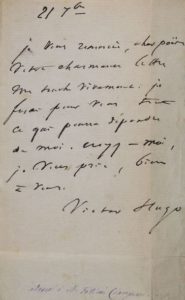 21 7bre
je vous remercie, cher poëte
Votre charmante lettre
me touche vivement. je
ferai pour vous tout
ce qui pourra dépendre
de moi. croyez-moi,
je vous prie, bien
à vous.
Victor Hugo